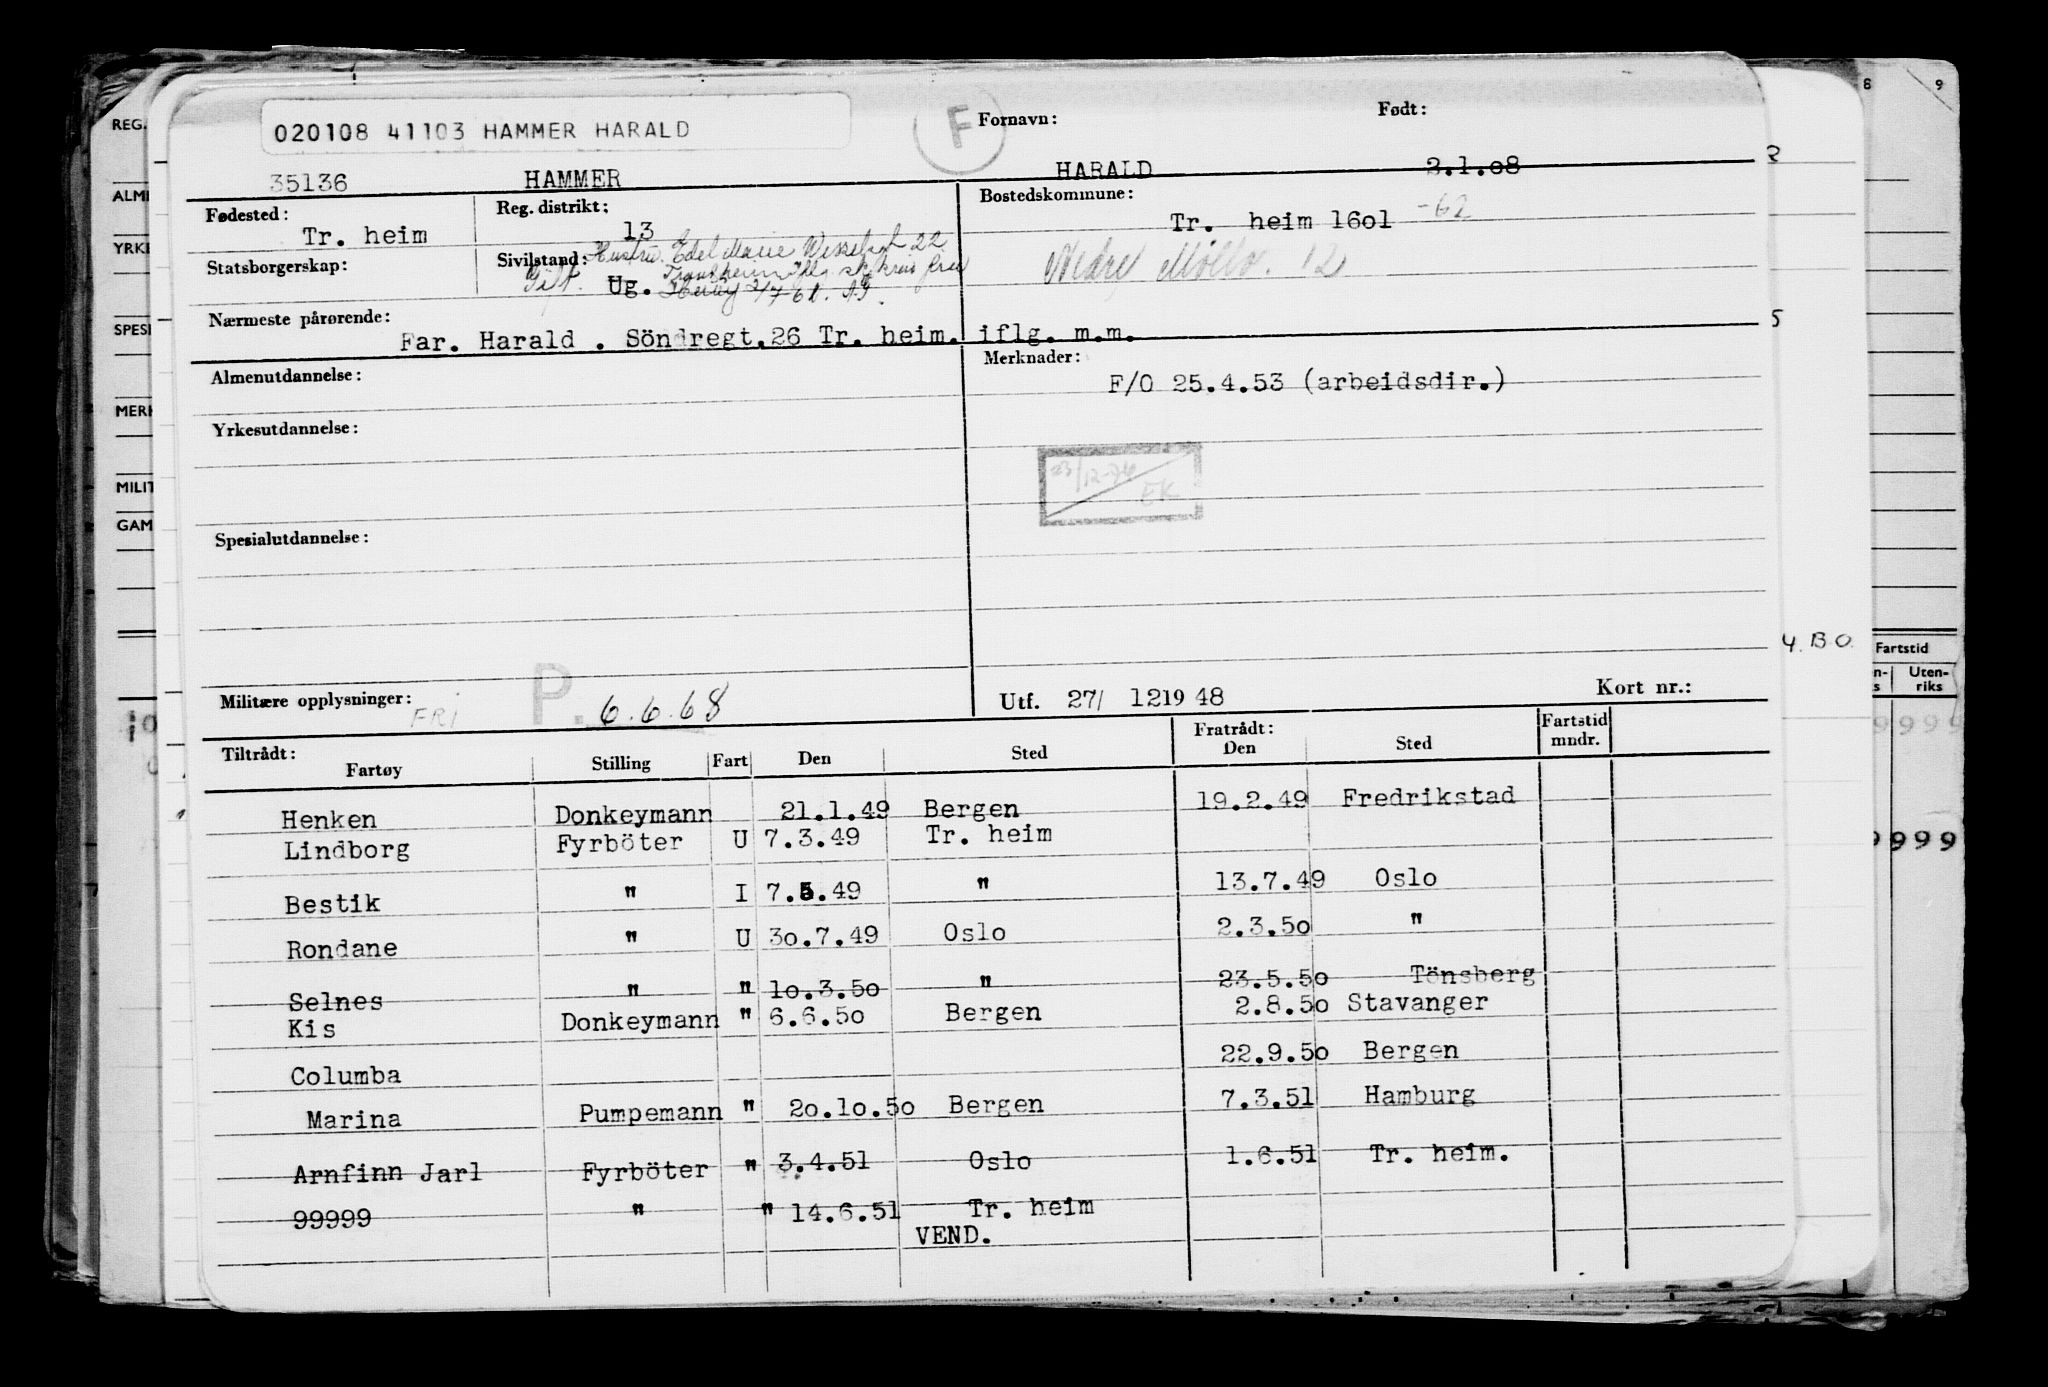 020108 41103 HAMMER HARALD
F
Fornavn:
Født:
35136 HAMMER HARALD 2.1.08
Fødested: Tr. heim
Reg. distrikt: 13
Bostedskommune: Tr. heim 16o1 -62
Statsborgerskap:
Sivilstand: Hustru Edel Marie
Gift. Ug.
Nedre 12
Nærmeste pårørende: Far. Harald . Söndregt.26 Tr. heim. iflg. m.m.
Almenutdannelse:
Merknader: F/O 25.4.53 (arbeidsdir.)
Yrkesutdannelse:
23/12-74 EK
Spesialutdannelse:
Militære opplysninger: FRI P. 6.6.68
Utf. 27/ 1219 48
Kort nr.:
Tiltrådt: Fratrådt: Fartstid mndr.
Fartøy Stilling Fart Den Sted Den Sted
Henken Donkeymann 21.1.49 Bergen 19.2.49 Fredrikstad
Lindborg Fyrböter U 7.3.49 Tr. heim
Bestik " I 7.5.49 " 13.7.49 Oslo
Rondane " U 3o.7.49 Oslo 2.3.5o "
Selnes " " 1o.3.5o " 23.5.5o Tönsberg
Kis Donkeymann " 6.6.5o Bergen 2.8.5o Stavanger
Columba 22.9.5o Bergen
Marina Pumpemann " 2o.1o.5o Bergen 7.3.51 Hamburg
Arnfinn Jarl Fyrböter " 3.4.51 Oslo 1.6.51 Tr. heim.
99999 " " 14.6.51 Tr. heim
VEND.
REG.
ALME
YRKE
SPESI
MERK
MILIT
GAM
8 9
5
4. B.O.
Fartstid
Uten-
riks
9999
999